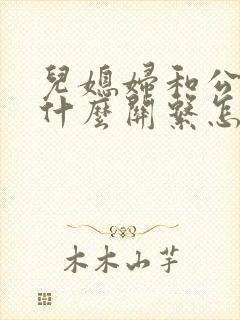 兒媳婦和公
什麼關系怎
木木山芋